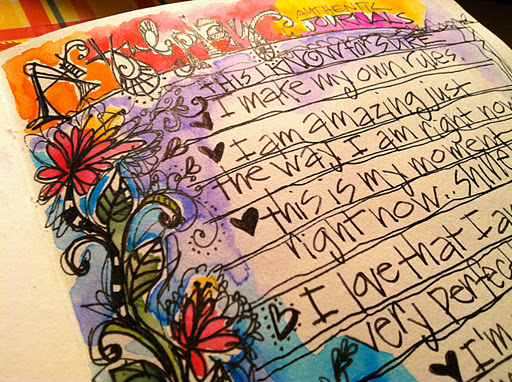 AUTHENTIC
JOURNALS
this I KNOW for SURE
I make my own rules.
I am amazing just
the way I am right now
this is my moment
right now.. shine
I love that I am
very perfec
I'm